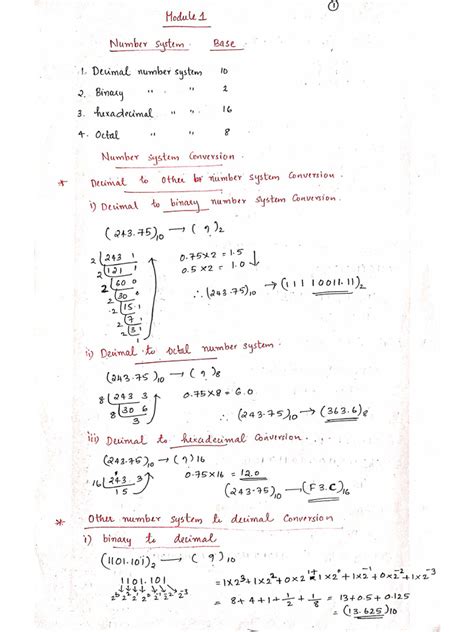 1
Module 1
Number system Base
1. Decimal number system 10
2. Binary " " 2
3. hexadecimal " " 16
4. Octal " " 8
Number system Conversion.
* Decimal to other number system Conversion.
i) Decimal to binary number system Conversion.
(243.75)10 → ( ? )2
2 243 1
2 121 1
2 60 0
2 30 0
2 15 1
2 7 1
2 3 1
1
0.75×2 = 1.5
0.5×2 = 1.0
∴ (243.75)10 → (11110011.11)2
ii) Decimal to octal number system.
(243.75)10 → ( ? )8
8 243 3
8 30 6
3
0.75×8 = 6.0
∴ (243.75)10 → (363.6)8
iii) Decimal to hexadecimal Conversion. . . .
(243.75)10 → ( ? )16
16 243 3
15
0.75×16 = 12.0
(243.75)10 → (F3.C)16
* Other number system to decimal Conversion
i) binary to decimal
(1101.101)2 → ( ? )10
1101.101
2³ 2² 2¹ 2⁰ 2⁻¹ 2⁻² 2⁻³
= 1×2³ + 1×2² + 0×2¹ + 1×2⁰ + 1×2⁻¹ + 0×2⁻² + 1×2⁻³
= 8 + 4 + 1 + 1/2 + 1/8 = 13 + 0.5 + 0.125
= (13.625)10